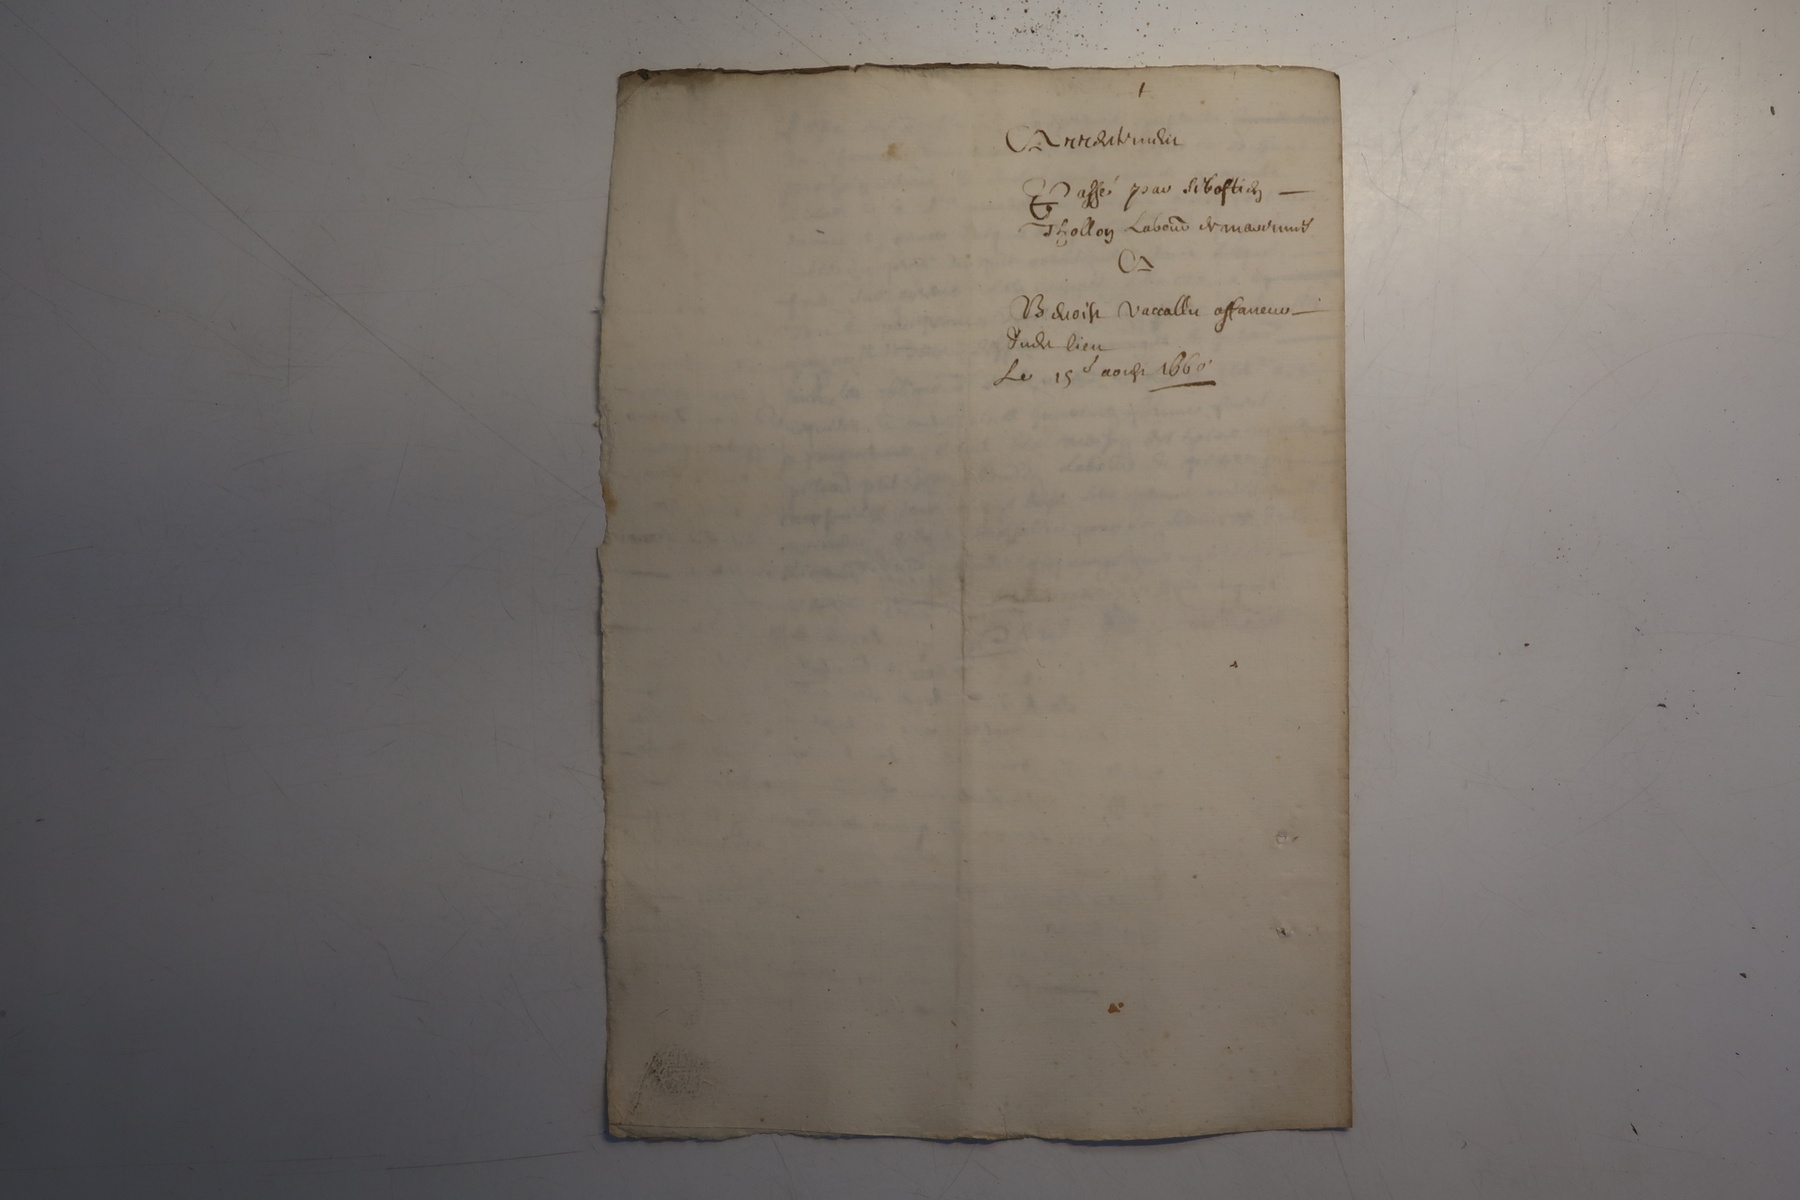 Arrentemen
Passé par sebastien
Thollon Labour de
A
Benoist Vaccallu affaneur
dudit lieu
Le 15e aoust 1660